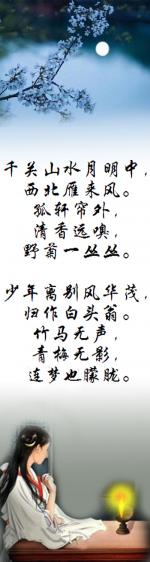 千关山水月明中，
西北雁来风。
孤轩帘外，
清香远噢，
野菊一丛丛。
少年离别风华茂，
归作白头翁。
竹马无声，
青梅无影，
连梦也朦胧。